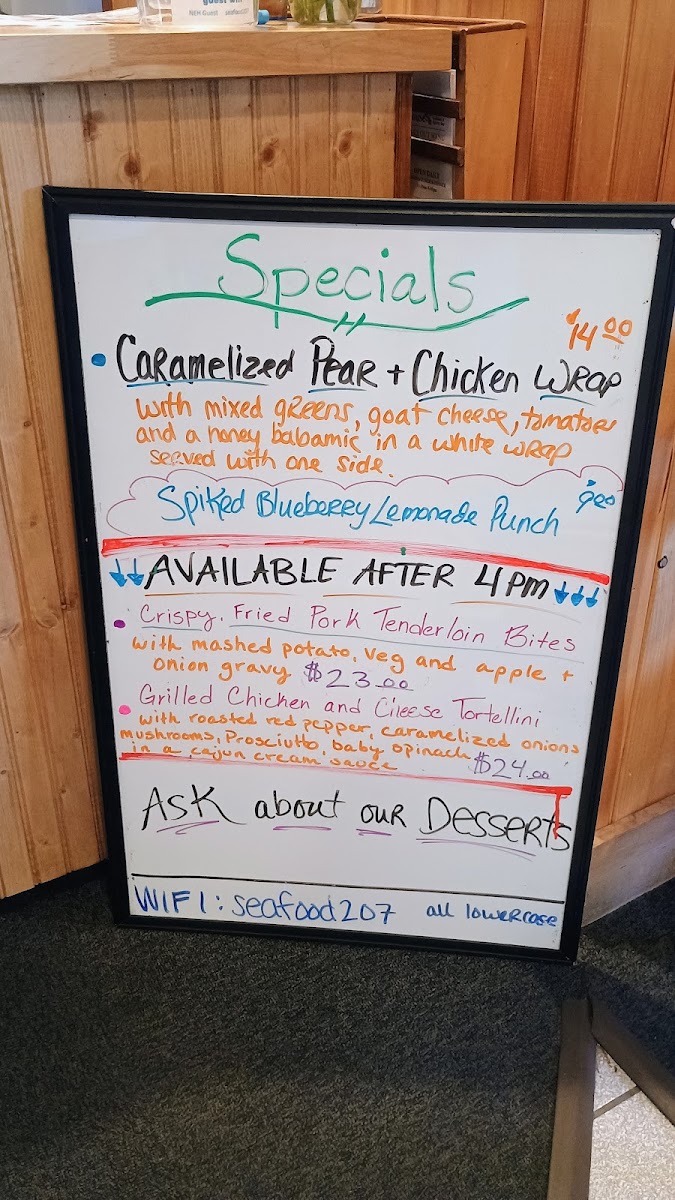 guest wifi
NEH Guest seafood207
Specials
$14.00
• Caramelized Pear + Chicken Wrap
with mixed greens, goat cheese, tomatoes
and a honey balsamic in a white wrap
served with one side.
Spiked Blueberry Lemonade Punch 9.00
↓↓ AVAILABLE AFTER 4pm ↓↓↓
• Crispy, Fried Pork Tenderloin Bites
with mashed potato, veg and apple +
onion gravy $23.00
• Grilled Chicken and Cheese Tortellini
with roasted red pepper, caramelized onions
mushrooms, Prosciutto, baby spinach
in a cajun cream sauce $24.00
Ask about our Desserts
WIFI: seafood207 all lowercase